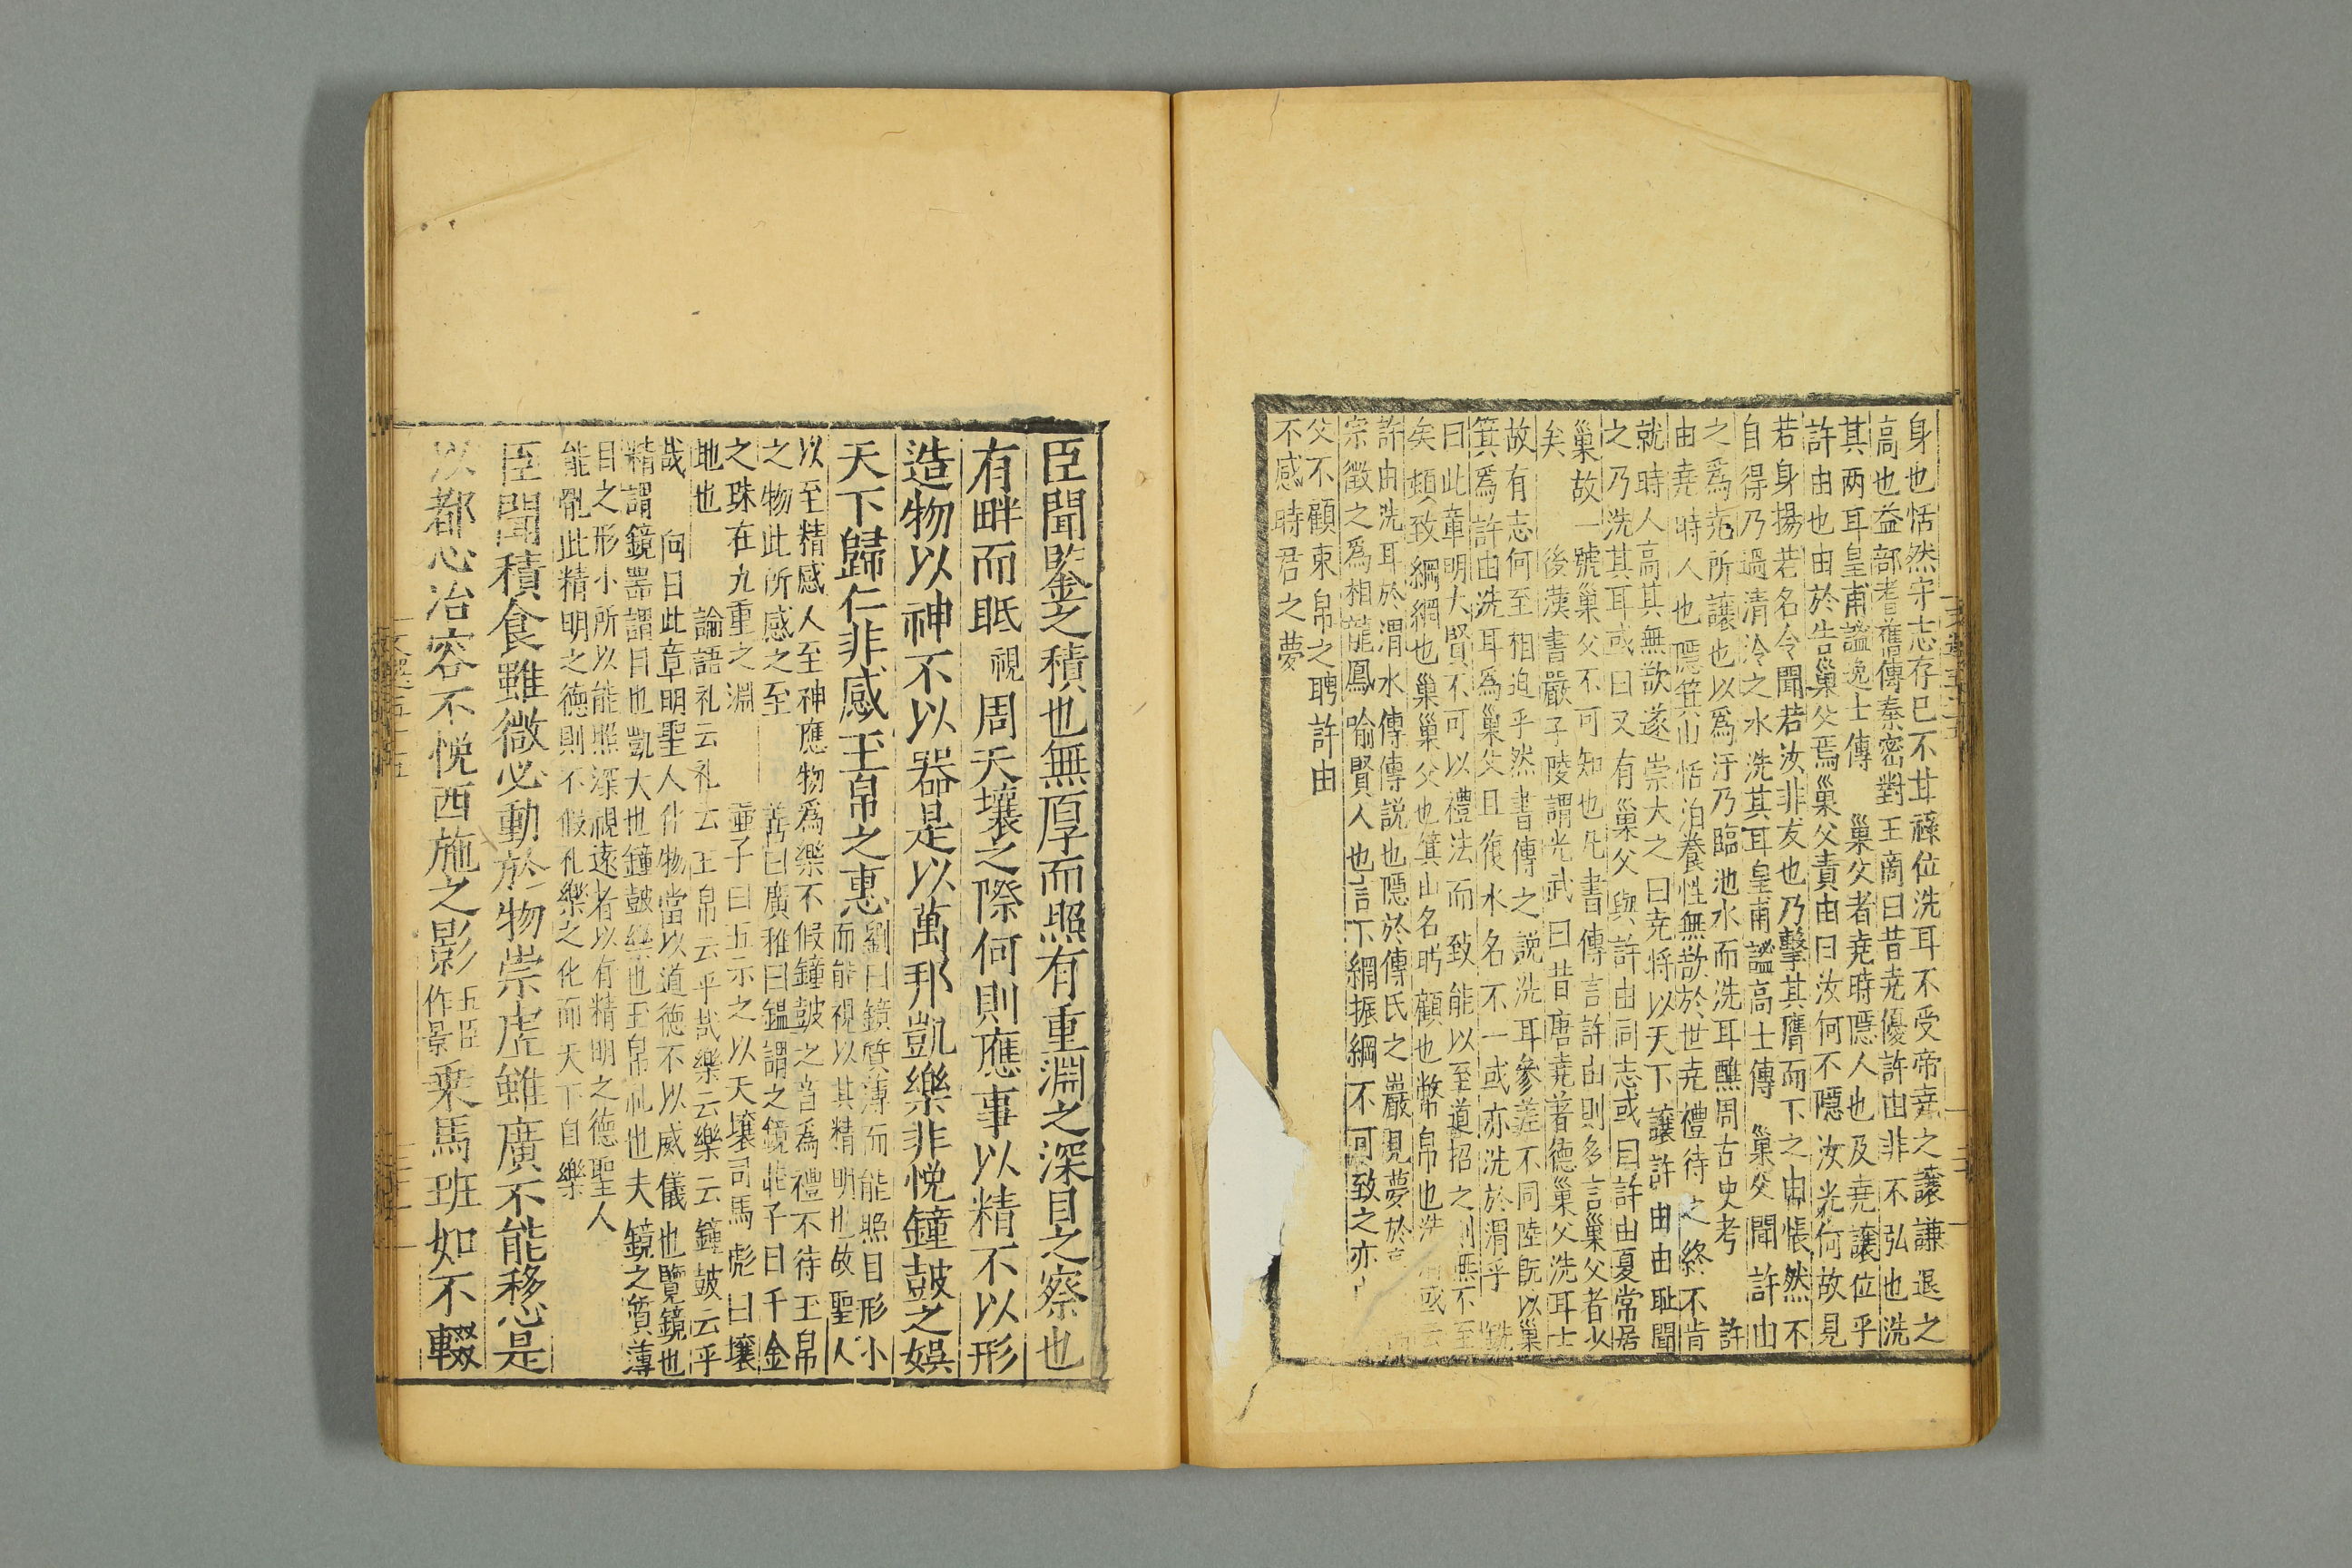 身也恬然守志存己不甘祿位洗耳不受帝堯之讓謙退之
高也益部耆舊傳秦密對王商曰昔堯優許由非不弘也洗
其兩耳皇甫謐逸士傳 巢父者堯時隱人也及堯讓位乎
許由也由於告巢父焉巢父責由曰汝何不隱汝光何故見
若身揚若名令聞若汝非友也乃擊其膺而下之由悵然不
自得乃過清泠之水洗其耳皇甫謐高士傳 巢父聞許由
之為堯所讓也以為汙乃臨池水而洗耳譙周古史考 許
由堯時人也隱箕山恬泊養性無欲於世堯禮待之終不肯
就時人高其無欲遂崇大之曰堯將以天下讓許由由耻聞
之乃洗其耳或曰又有巢父與許由同志或曰許由夏常居
巢故一號巢父不可知也凡書傳言許由則多言巢父者少
矣 後漢書嚴子陵謂光武曰昔唐堯著德巢父洗耳士
故有志何至相迫乎然書傳之説洗耳參差不同陸既以巢
箕為許由洗耳為巢父且復水名不一或亦洗於渭乎 銑
曰此章明大賢不可以禮法而致能以至道招之則無不至
矣頓致綱網也巢巢父也箕山名眄顧也幣帛也洗 渭或云
許由洗耳於渭水傳傳説也隱於傳氏之巖見夢於
宗徵之為相龍鳳喻賢人也言下網振綱不可致之亦
父不顧束帛之聘許由
不感時君之夢
臣聞鑒之積也無厚而照有重淵之深目之察也
有畔而眡視周天壤之際何則應事以精不以形
造物以神不以器是以萬邦凱樂非悅鐘鼓之娛
天下歸仁非感玉帛之惠劉曰鏡質薄而能照目形小
而能視以其精明也故聖人
以至精感人至神應物為樂不假鐘鼓之音為禮不待玉帛
之物此所感之至 善曰廣雅曰鑑謂之鏡莊子曰千金
之珠在九重之淵 壺子曰五示之以天壤司馬彪曰壤
地也 論語禮云礼云玉帛云乎哉樂云樂云鐘鼓云乎
哉 向曰此章明聖人化物當以道德不以威儀也覽鏡也
精謂鏡器謂目也凱大也鐘鼓樂也玉帛礼也夫鏡之質薄
目之形小所以能照深視遠者以有精明之德聖人
能亂此精明之德則不假礼樂之化而天下自樂
臣聞積食雖微必動於物崇虛雖廣不能移心是
以都心冶容不悅西施之影五臣作景乘馬班如不輟